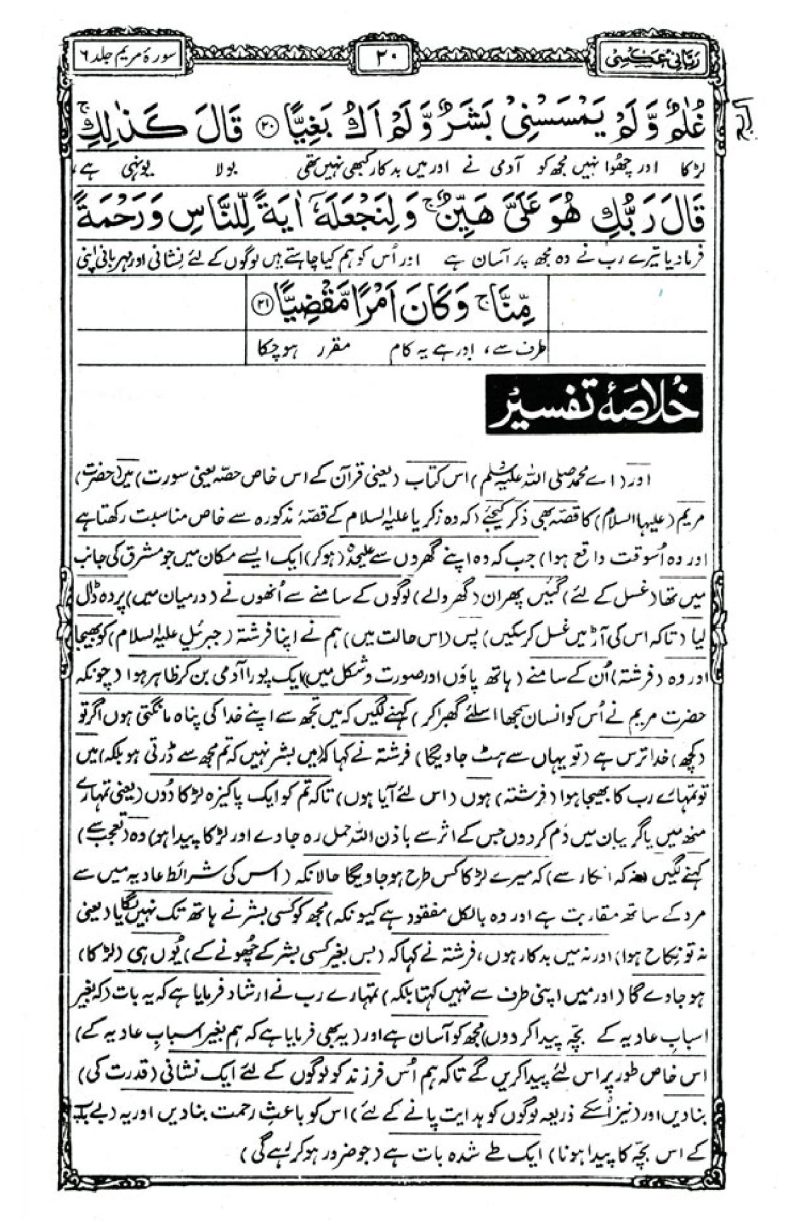 ربانی عکسی
۲۰
سورهٔ مریم جلد ۶
غُلٰمٌ وَّلَمْ يَمْسَسْنِيْ بَشَرٌ وَّلَمْ اَكُ بَغِيًّا ۝۲۰ قَالَ كَذٰلِكِ ۚ
لڑکا اور چھوا نہیں مجھ کو آدمی نے اور میں بدکار کبھی نہیں تھی بولا یونہی ہے،
قَالَ رَبُّكِ هُوَ عَلَيَّ هَيِّنٌ ۚ وَلِنَجْعَلَهٗٓ اٰيَةً لِّلنَّاسِ وَرَحْمَةً
فرمادیا تیرے رب نے وہ مجھ پر آسان ہے اور اُس کو ہم کیا چاہتے ہیں لوگوں کے لئے نشانی اور مہربانی اپنی
مِّنَّا ۚ وَكَانَ اَمْرًا مَّقْضِيًّا ۝۲۱
طرف سے، اور ہے یہ کام مقرر ہوچکا
خلاصۂ تفسیر
اور (اے محمد صلی اللہ علیہ وسلم) اس کتاب (یعنی قرآن کے اس خاص حصّہ یعنی سورت) میں (حضرت)
مریم (علیہا السلام) کا قصّہ بھی ذکر کیجئے (کہ وہ زکریا علیہ السلام کے قصّۂ مذکورہ سے خاص مناسبت رکھتا ہے
اور وہ اسوقت واقع ہوا) جب کہ وہ اپنے گھروں سے علیٰحدہ (ہوکر) ایک ایسے مکان میں جو مشرق کی جانب
میں تھا (غسل کے لئے) گئیں پھر ان (گھر والے) لوگوں کے سامنے سے اُنھوں نے (درمیان میں) پردہ ڈال
لیا (تاکہ اس کی آڑ میں غسل کرسکیں) پس (اس حالت میں) ہم نے اپنا فرشتہ (جبرئیل علیہ السلام) کو بھیجا
اور وہ (فرشتہ) اُن کے سامنے (ہاتھ پاؤں اور صورت و شکل میں) ایک پورا آدمی بن کر ظاہر ہوا (چونکہ
حضرت مریم نے اُس کو انسان سمجھا اسلئے گھبرا کر) کہنے لگیں کہ میں تجھ سے اپنے خدا کی پناہ مانگتی ہوں اگر تو
(کچھ) خدا ترس ہے (تو یہاں سے ہٹ جاویگا) فرشتہ نے کہا کہ (میں بشر نہیں کہ تم مجھ سے ڈرتی ہو بلکہ) میں
تو تمہارے رب کا بھیجا ہوا (فرشتہ) ہوں (اس لئے آیا ہوں) تاکہ تم کو ایک پاکیزہ لڑکا دوں (یعنی تمہارے
منھ میں یا گریبان میں دَم کردوں جس کے اثر سے باذن اللہ حمل رہ جاوے اور لڑکا پیدا ہو) وہ (تعجب سے)
کہنے لگیں (نہ کہ انکار سے) کہ میرے لڑکا کس طرح ہوجاویگا حالانکہ (اس کی شرائط عادیہ میں سے
مرد کے ساتھ مقاربت ہے اور وہ بالکل مفقود ہے کیونکہ) مجھ کو کسی بشر نے ہاتھ تک نہیں لگایا (یعنی
نہ تو نکاح ہوا) اور نہ میں بدکار ہوں، فرشتہ نے کہا کہ (بس بغیر کسی بشر کے چھونے کے) یُوں ہی (لڑکا)
ہو جاوے گا (اور میں اپنی طرف سے نہیں کہتا بلکہ) تمہارے رب نے ارشاد فرمایا ہے کہ یہ بات (کہ بغیر
اسبابِ عادیہ کے بچّہ پیدا کردوں) مجھ کو آسان ہے اور (یہ بھی فرمایا ہے کہ ہم بغیر اسبابِ عادیہ کے)
اس خاص طور پر اس لئے پیدا کریں گے تاکہ ہم اُس فرزند کو لوگوں کے لئے ایک نشانی (قدرت کی)
بنادیں اور (نیز اُسکے ذریعہ لوگوں کو ہدایت پانے کے لئے) اس کو باعثِ رحمت بنادیں اور یہ (بے باپ
کے اس بچّہ کا پیدا ہونا) ایک طے شدہ بات ہے (جو ضرور ہوکر رہے گی)